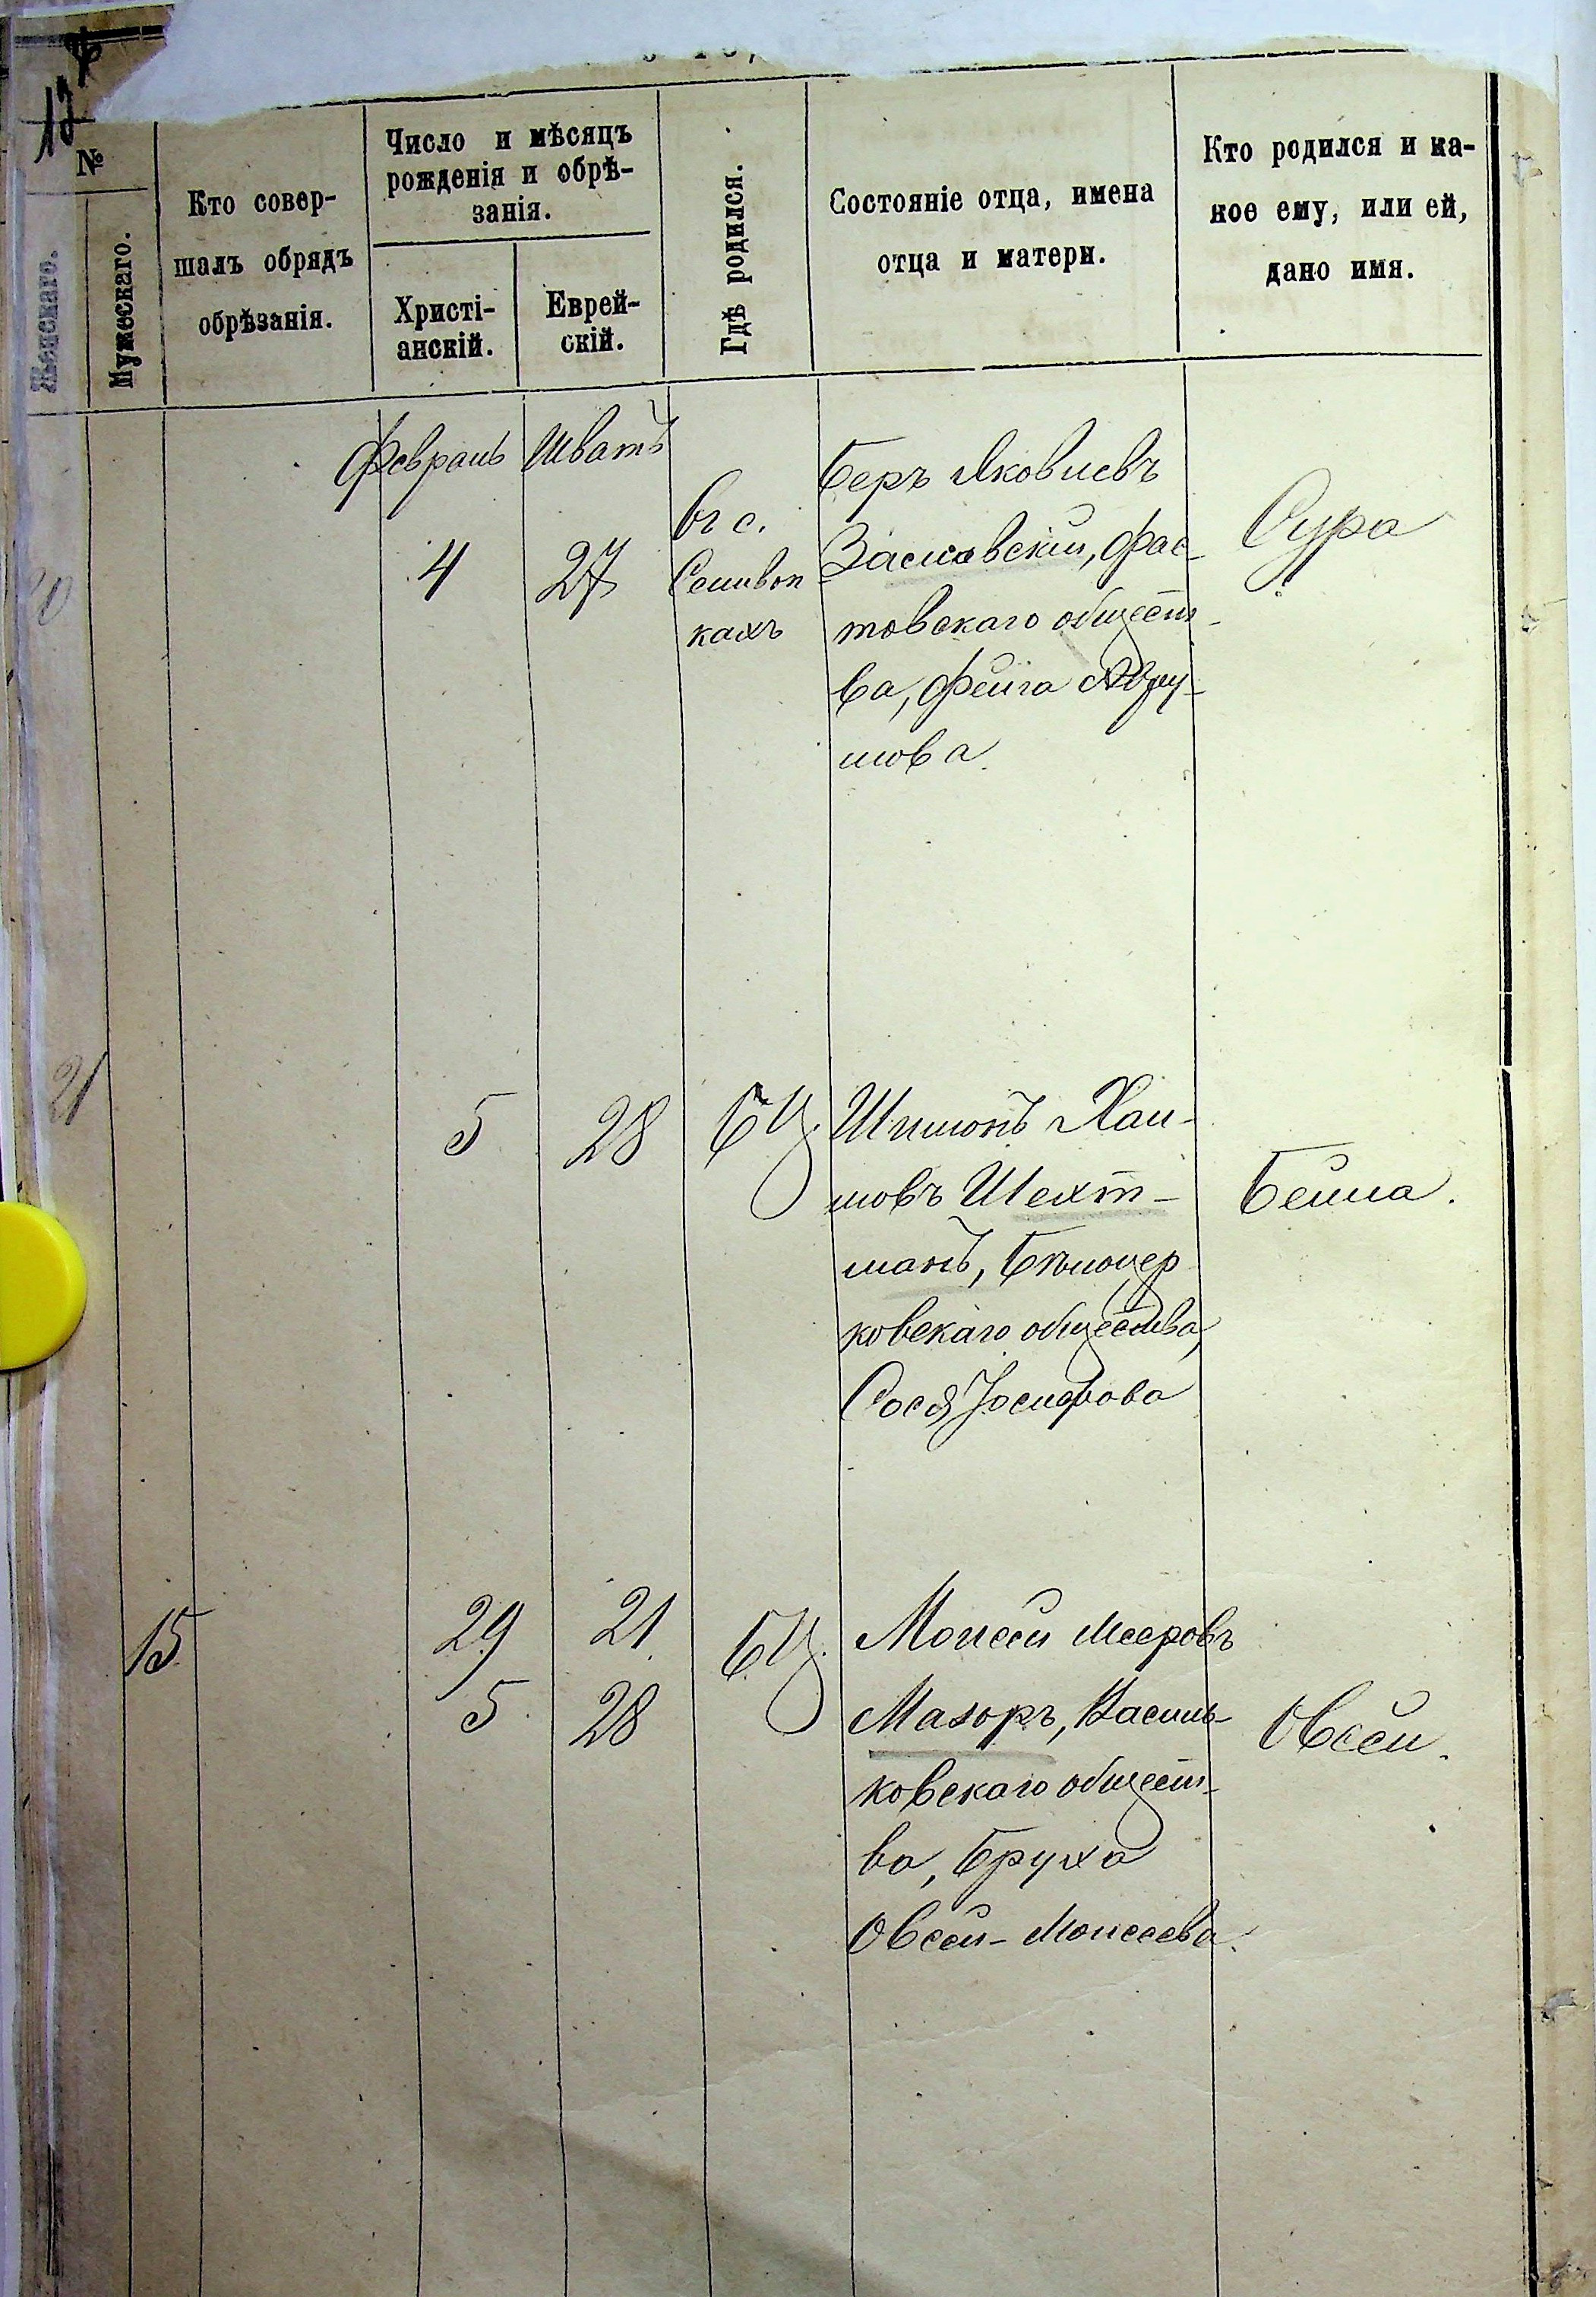 №
Женскаго.
Мужескаго.
Кто совер-
шалъ обрядъ
обрѣзанія.
Число и мѣсяцъ
рожденія и обрѣ-
занія.
Христі-
анскій.
Еврей-
скій.
Гдѣ родился.
Состояніе отца, имена
отца и матери.
Кто родился и ка-
кое ему, или ей,
дано имя.
Февраль Шватъ
4 27
въ с.
кахъ
Беръ Яковлевъ
Заславскій, Фас-
товскаго общест-
ва, Фейга Авру-
мова
Сура
21
5 28 БЦ.
Шимонъ Хаи-
мовъ Шехт-
манъ, Бѣлоцер
ковскаго общества,
Сося Іосифова
Бейла.
15
29 21 БЦ.
5 28
Моисей Мееровъ
Мазоръ, Василь-
ковскаго общест-
ва, Бруха
Овсей-Моисеева.
Овсей.